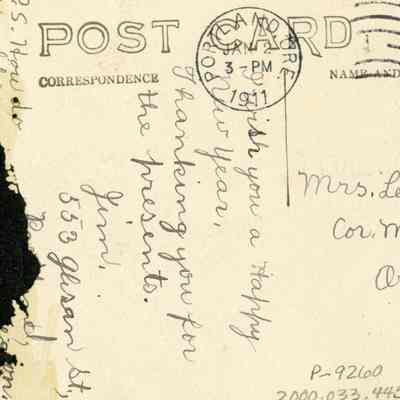 POST CARD
CORRESPONDENCE
NAME AND
PORTLAND, ORE.
JAN
3-PM
1911
I wish you a Happy
New Year,
Thanking you for
the presents.
Jim.
553 Glisan St,
P.S. How do
Mrs. Le
Cor. M
O
P-9260
2000.033.443